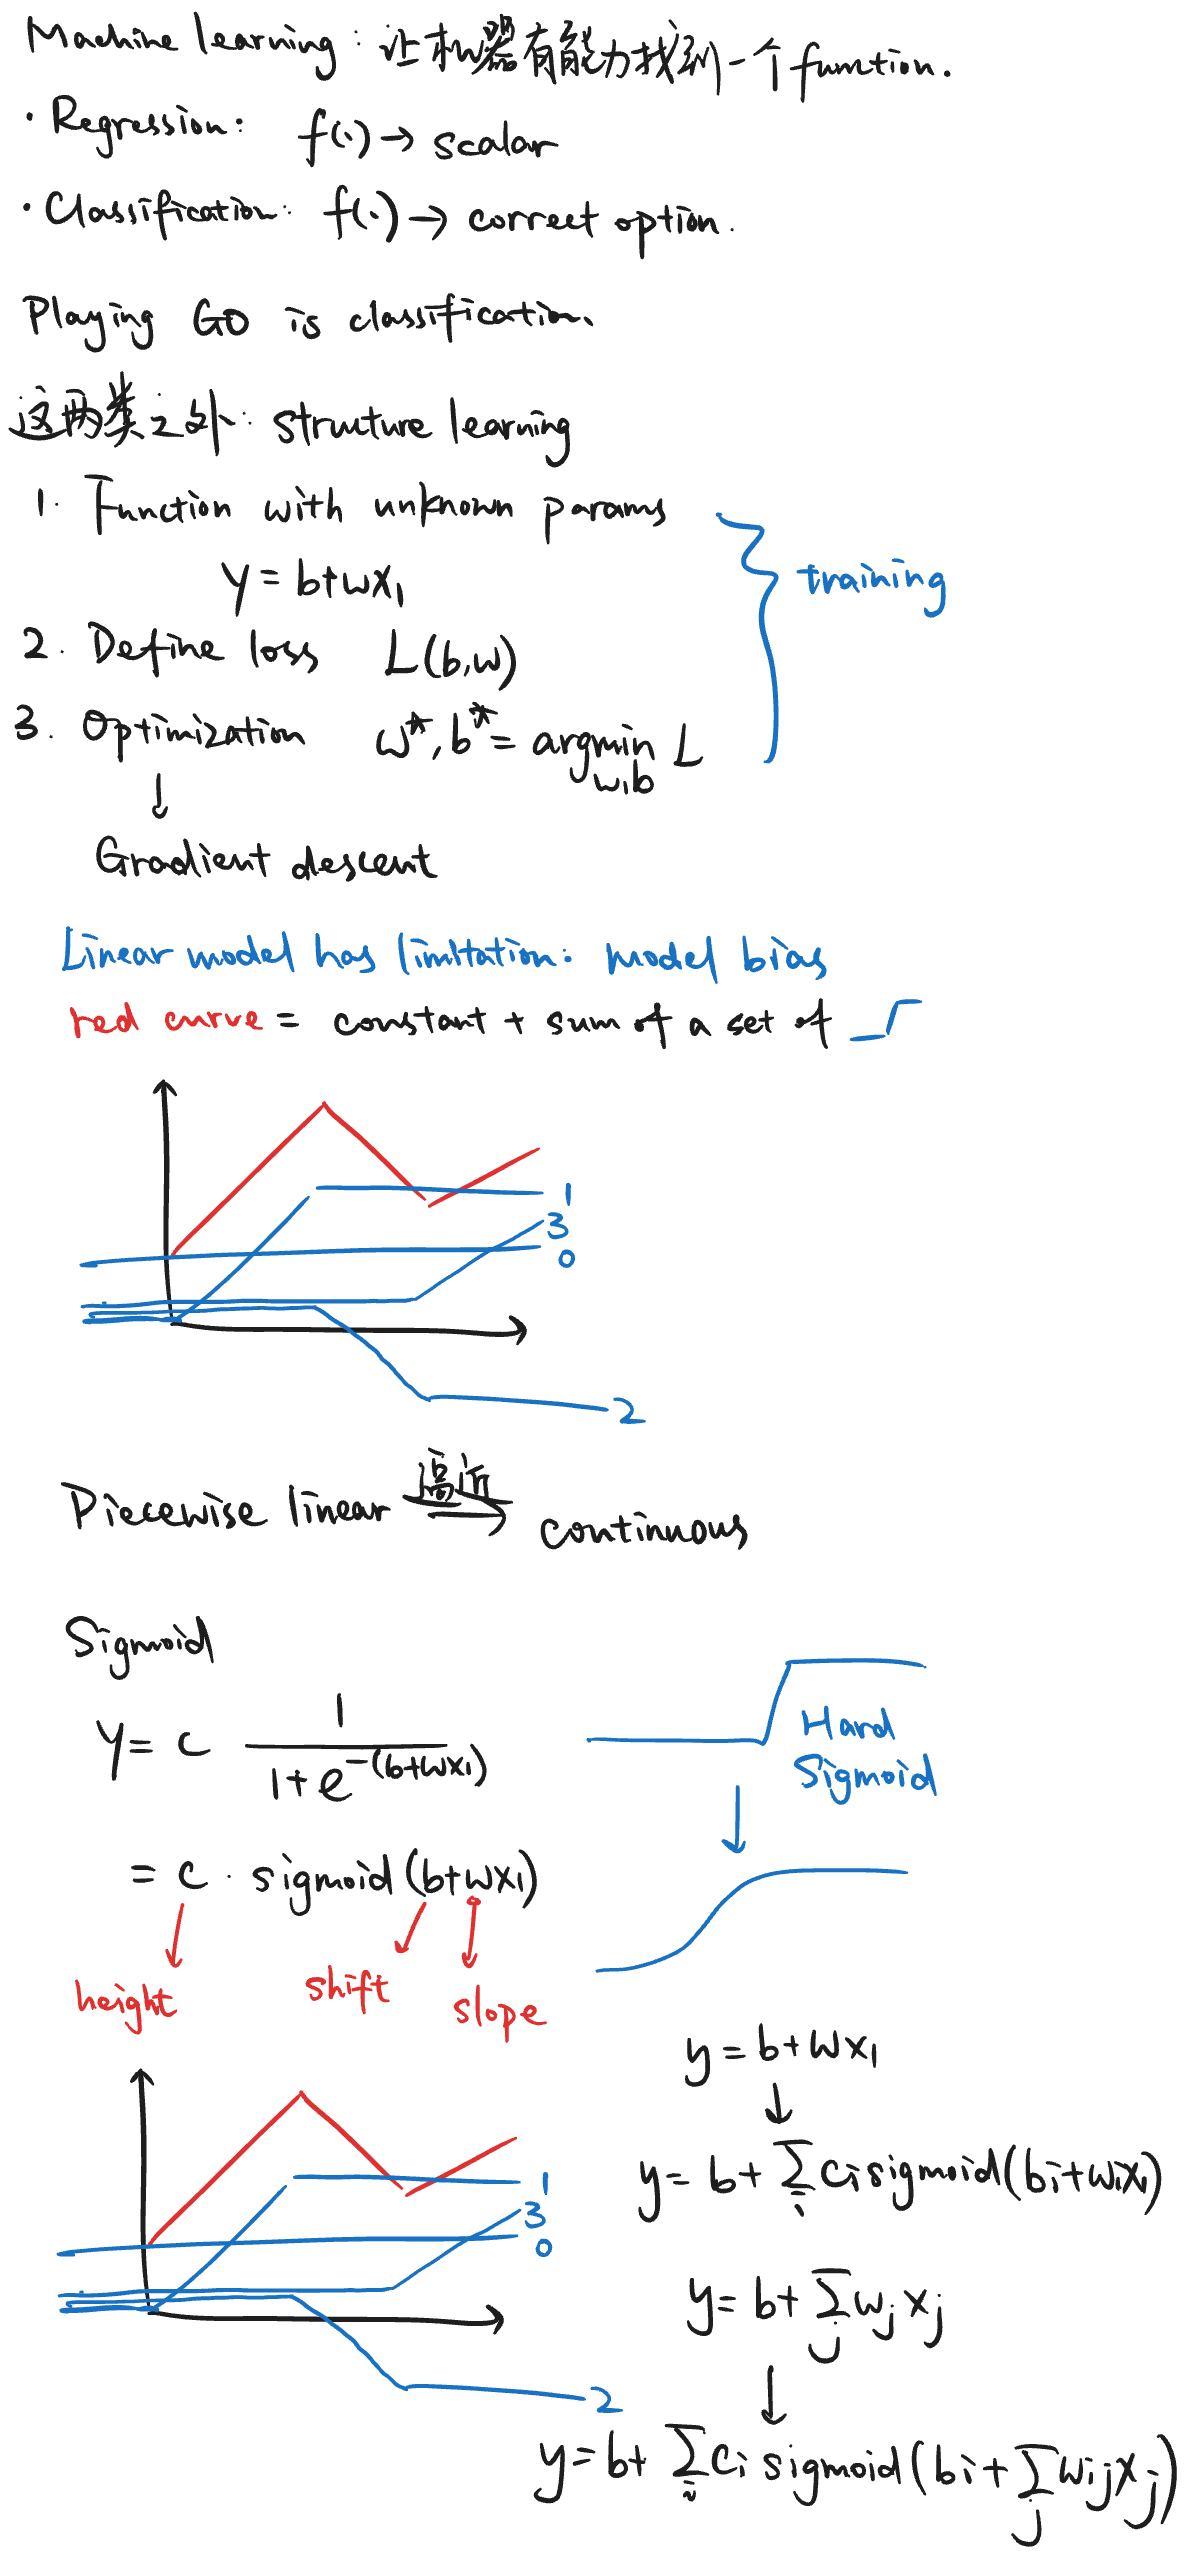 Machine learning: 让机器有能力找到一个 function.
· Regression: f(·) → scalar
· Classification: f(·) → correct option.
Playing GO is classification.
这两类之外: structure learning
1. Function with unknown params
y = b+wx₁
training
2. Define loss L(b,w)
3. Optimization w*, b* = argmin L
w,b
↓
Gradient descent
Linear model has limitation: model bias
red curve = constant + sum of a set of
1
3
0
2
逼近
Piecewise linear → continuous
Sigmoid
y = c 1 / (1+e^-(b+wx₁))
Hard
Sigmoid
= c · sigmoid(b+wx₁)
height shift slope
y = b+wx₁
↓
y = b+ ∑ᵢ cᵢ sigmoid(bᵢ+wᵢx₁)
1
3
0
2
y = b+ ∑ⱼ wⱼ xⱼ
↓
y = b+ ∑ᵢ cᵢ sigmoid(bᵢ+ ∑ⱼ wᵢⱼxⱼ)